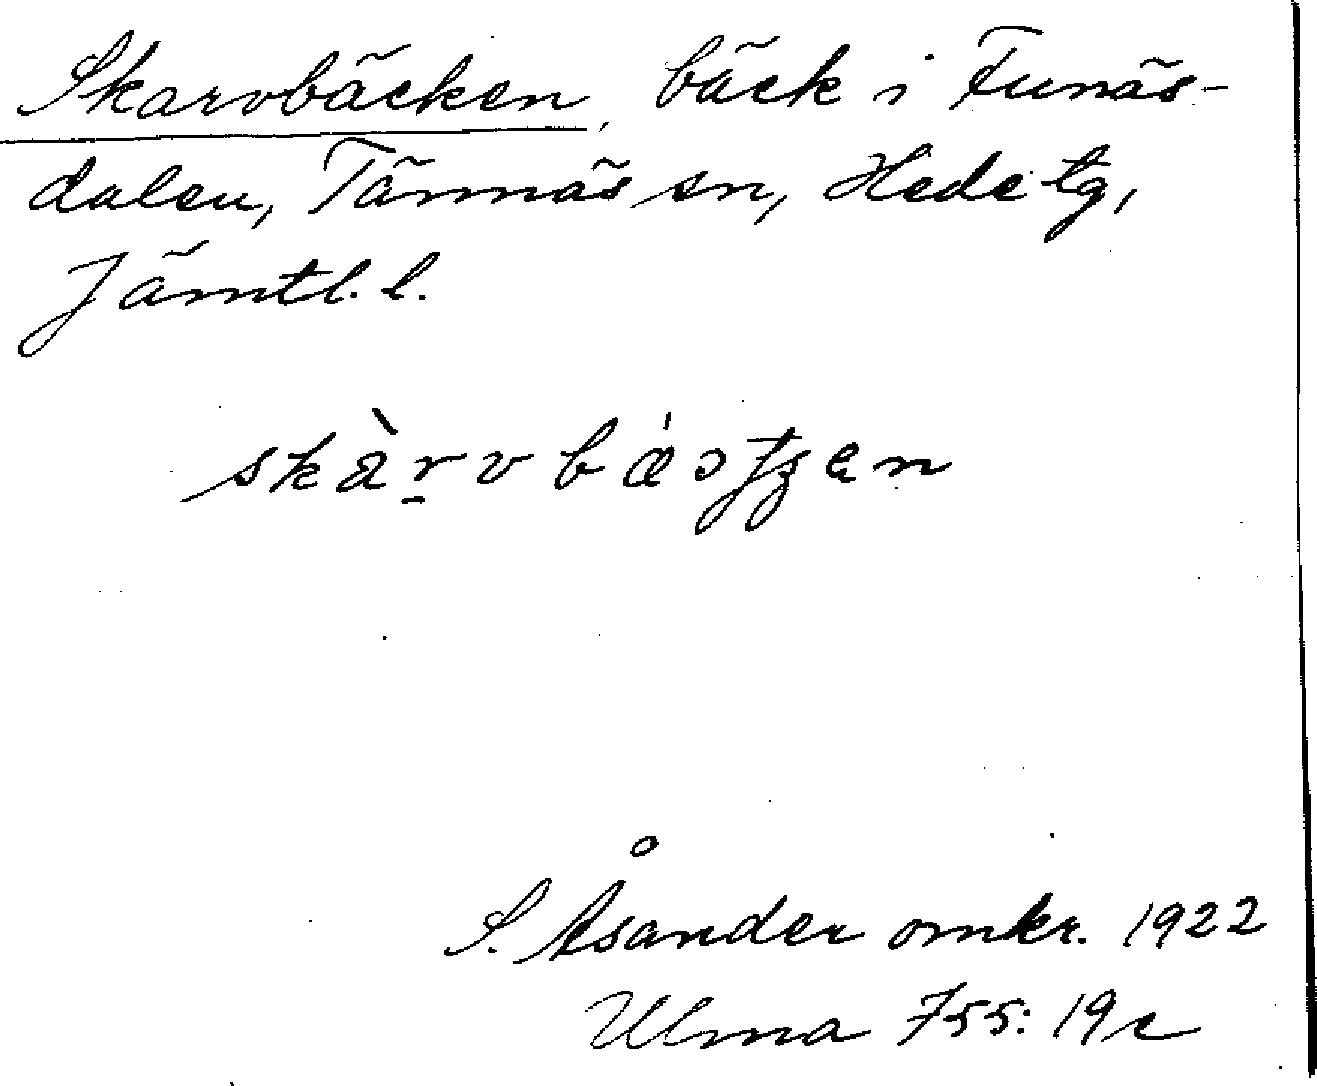 Skarvbäcken, bäck i Funäs-
dalen, Tännäs sn, Hede tg,
Jämtl. l.
S. Åsander omkr. 1922
Ulma 755: 19c